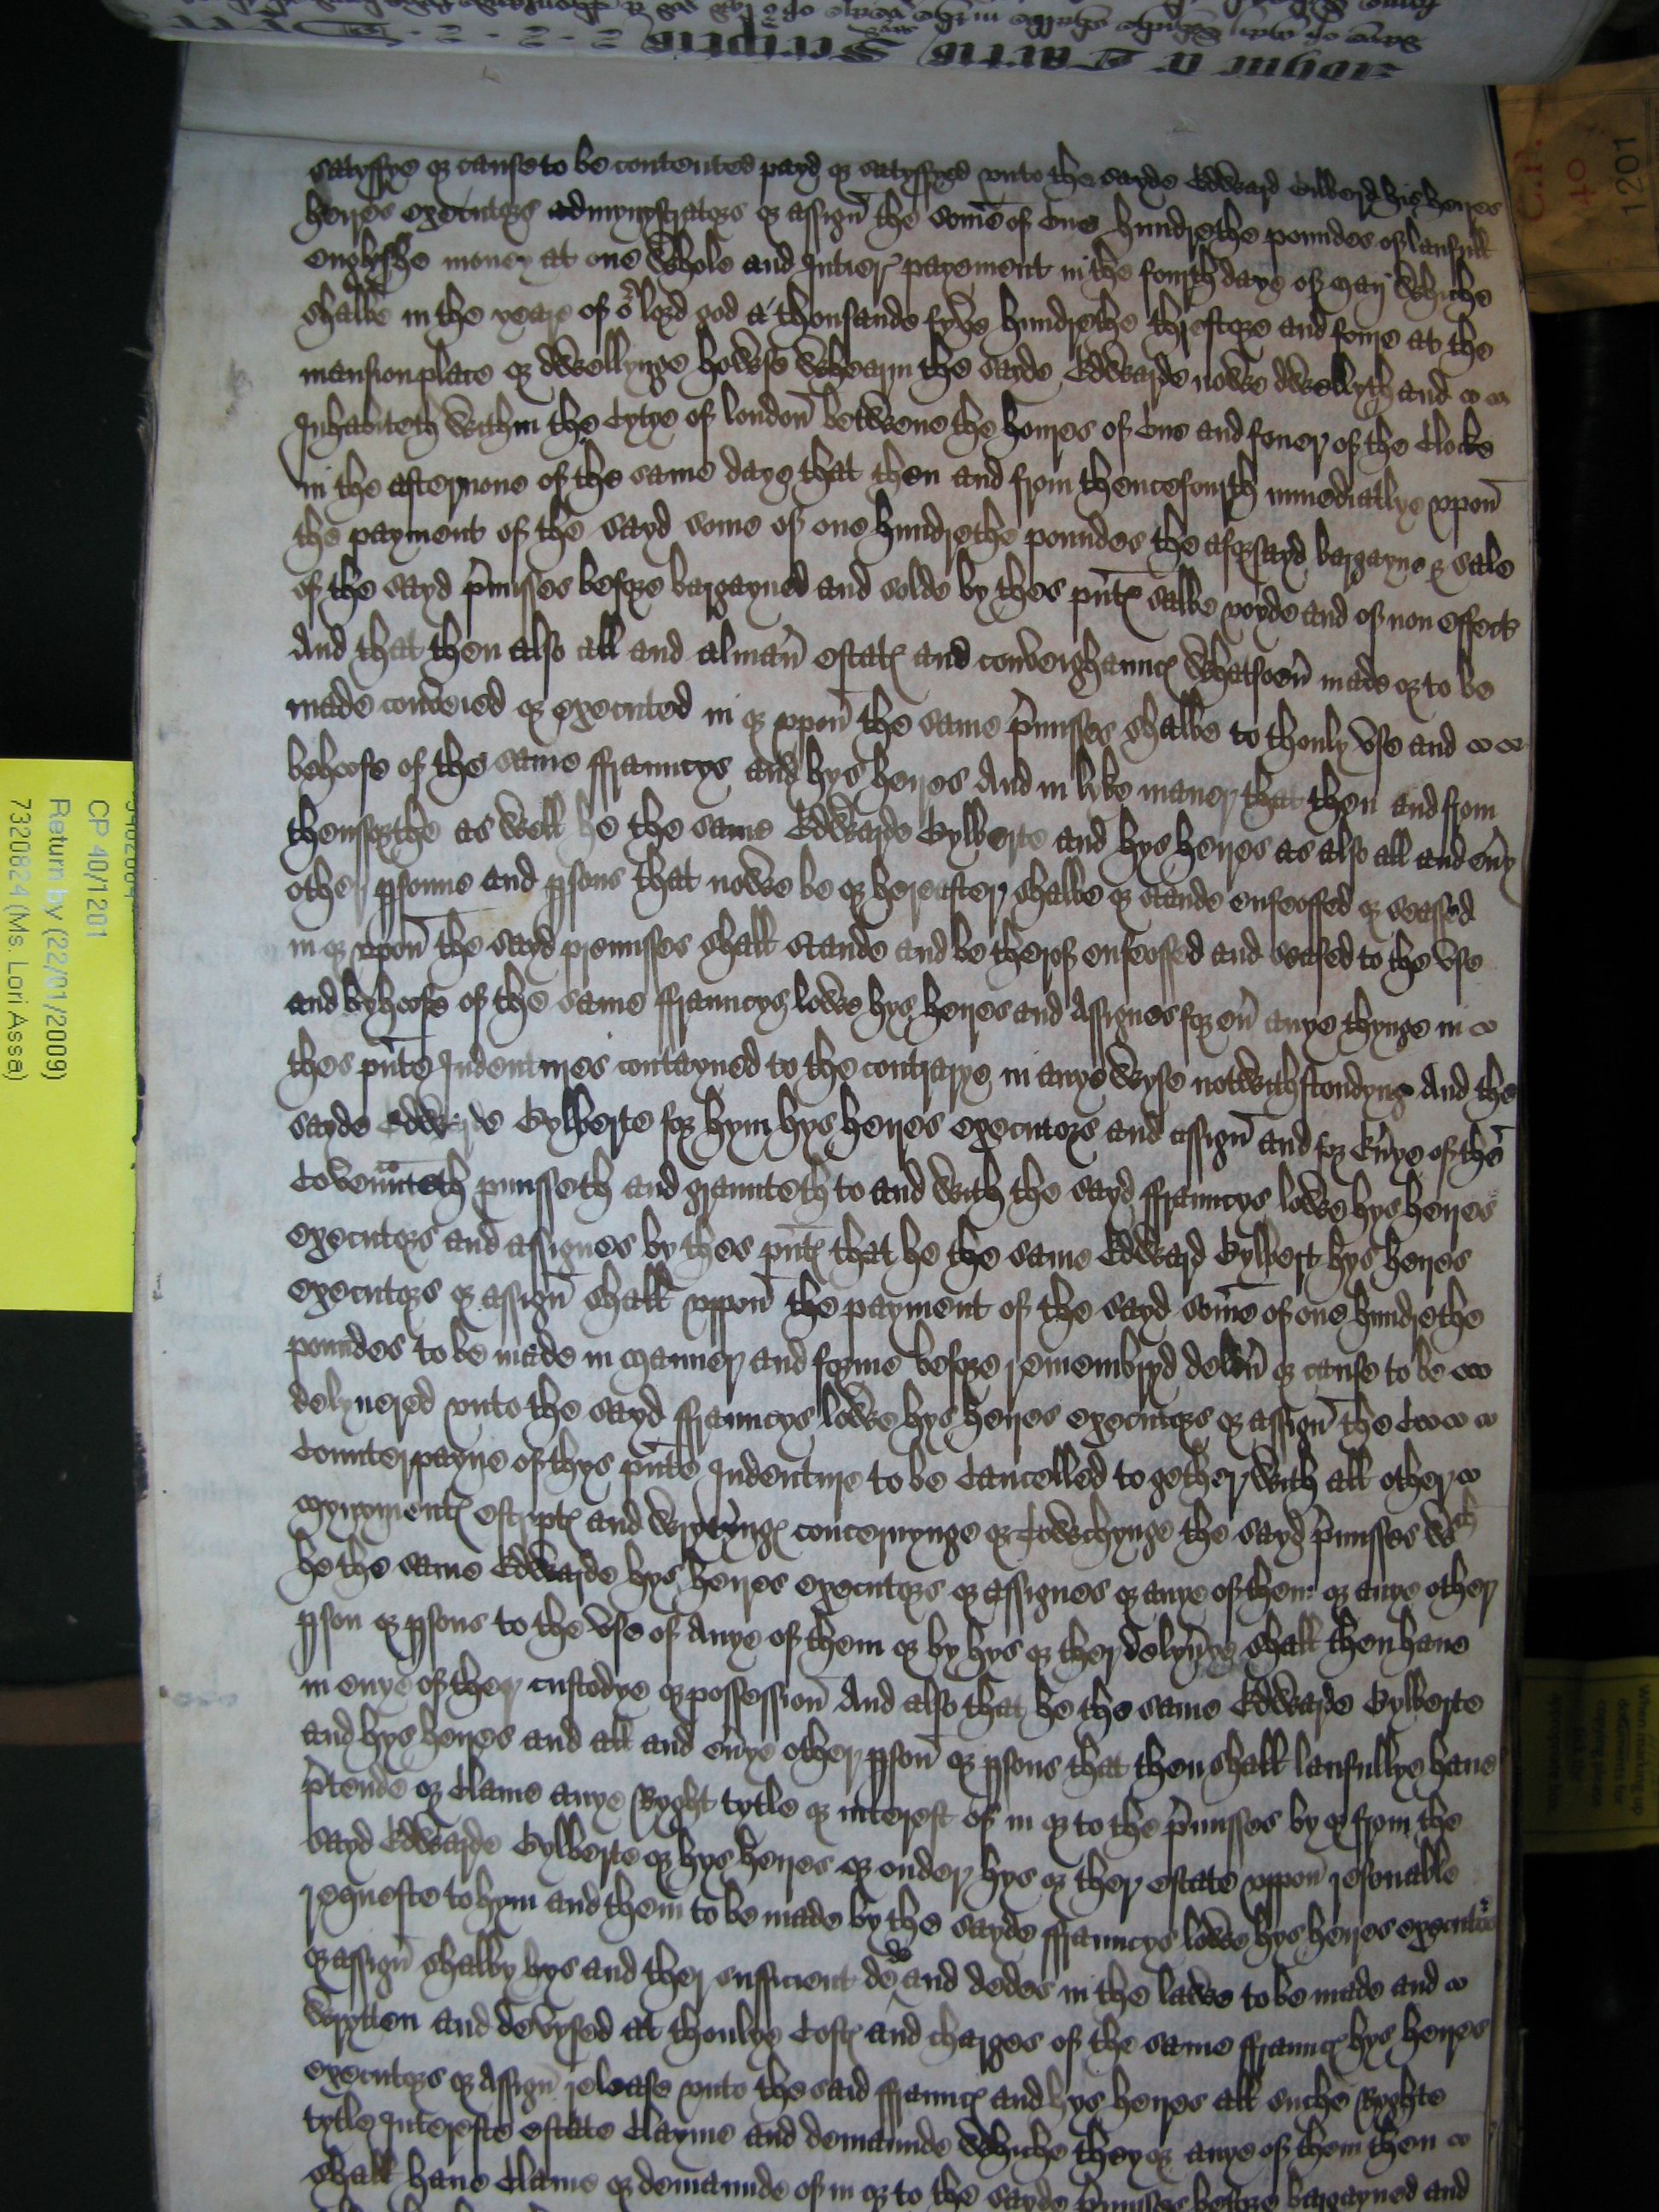 satysfye or cause to be contented payd or satysfyed unto the sayde Edward Gilberd his heires
heires executors admynystrators or assign the some of one hundrethe poundes of laufull
englysshe money at one whole and Intier payement in the fourth daye of maij whiche
shalbe in the yeare of or lord god a thousande fyve hundrethe threscore and foure at the
mansionplace or dwellynge howse whearin the sayde Edwarde nowe dwellyth and
Inhabiteth within the Cytye of london betwene the houres of one and fouer of the Clocke
in the afternone of the same daye that then and from thencefourth immediatlye uppon
the payment of the sayd some of one hundrethe poundes the aforsayd bargayne & sale
of the sayd pmisses before bargayned and solde by thes pnte salbe voyde and of non effect
And that then also all and alman estate and conveighaunce whatsoeu made or to be
made conveied or executed in or uppon the same pmisses shalbe to thonly use and
behoofe of the same ffrauncys and hys heires And in lyke maner that then and from
thensforthe as well he the same Edwarde Gylberte and hys heires as also all and eny
other psonne and psons that nowe be or hereafter shalbe or stande enfeoffed or seassed
in or uppon the sayd premisses shall stande and be therof enfeoffed and seased to the use
and byhoofe of the same ffrauncys lowe hys heires and Assignes for eu anye thynge in
thes pnte Indentures contayned to the contrarye in anye wyse notwithstondyng And the
sayde Edwarde Gylberte for hym hys heires executors and assign and for eu'ye of the
Covennteth pmisseth and graunteth to and with the sayd ffrauncys lowe hys heires
executors and assignes by thes pnte that he the same Edward Gylbert hys heires
executors or assign shall uppon the payment of the sayd some of one hundrethe
poundes to be made in manner and forme before remembryd delyu or cause to be
delyuered unto the sayd ffrauncys lowe hys heires executors or assign the
Counterpayne of thys pnte Indenture to be Cancelled together with all other
mynyments escripte and wrytynge concernynge or towchynge the sayd pmisses wch
he the same Edwarde hys heires executors or assignes or anye of them or anye other
pson or psons to the use of anye of them or by hys or ther delyu'ye shall then haue
in enye of ther custodye or possession And also that he the same Edwarde Gylberte
and hys heires and all and eu'ye other pson or psons that then shall laufullye haue
ptende or Clame anye Ryght tytle or interest of in or to the pmisses by or from the
sayd Edwarde Gylberte or hys heires or onder hys or ther estate uppon resonable
requeste to hym and them to be made by the sayde ffrauncys lowe hys heires executors
or assign shalby hys and ther sufficient dede and dedes in the lawe to be made and
wrytten and devysed at thonlye Coste and charges of the same ffraunc hys heires
executors or Assign release unto the said ffraunc and hys heires all suche Ryghte
tytle Intereste estate Clayme and demaunde whiche they or anye of them then
shall haue Clame or demaunde of in or to the sayde pmisses before bargayned and
C.P.
40
1201
CP 40/1201
Return by (22/01/2009)
7320824 (Ms. Lori Asse)